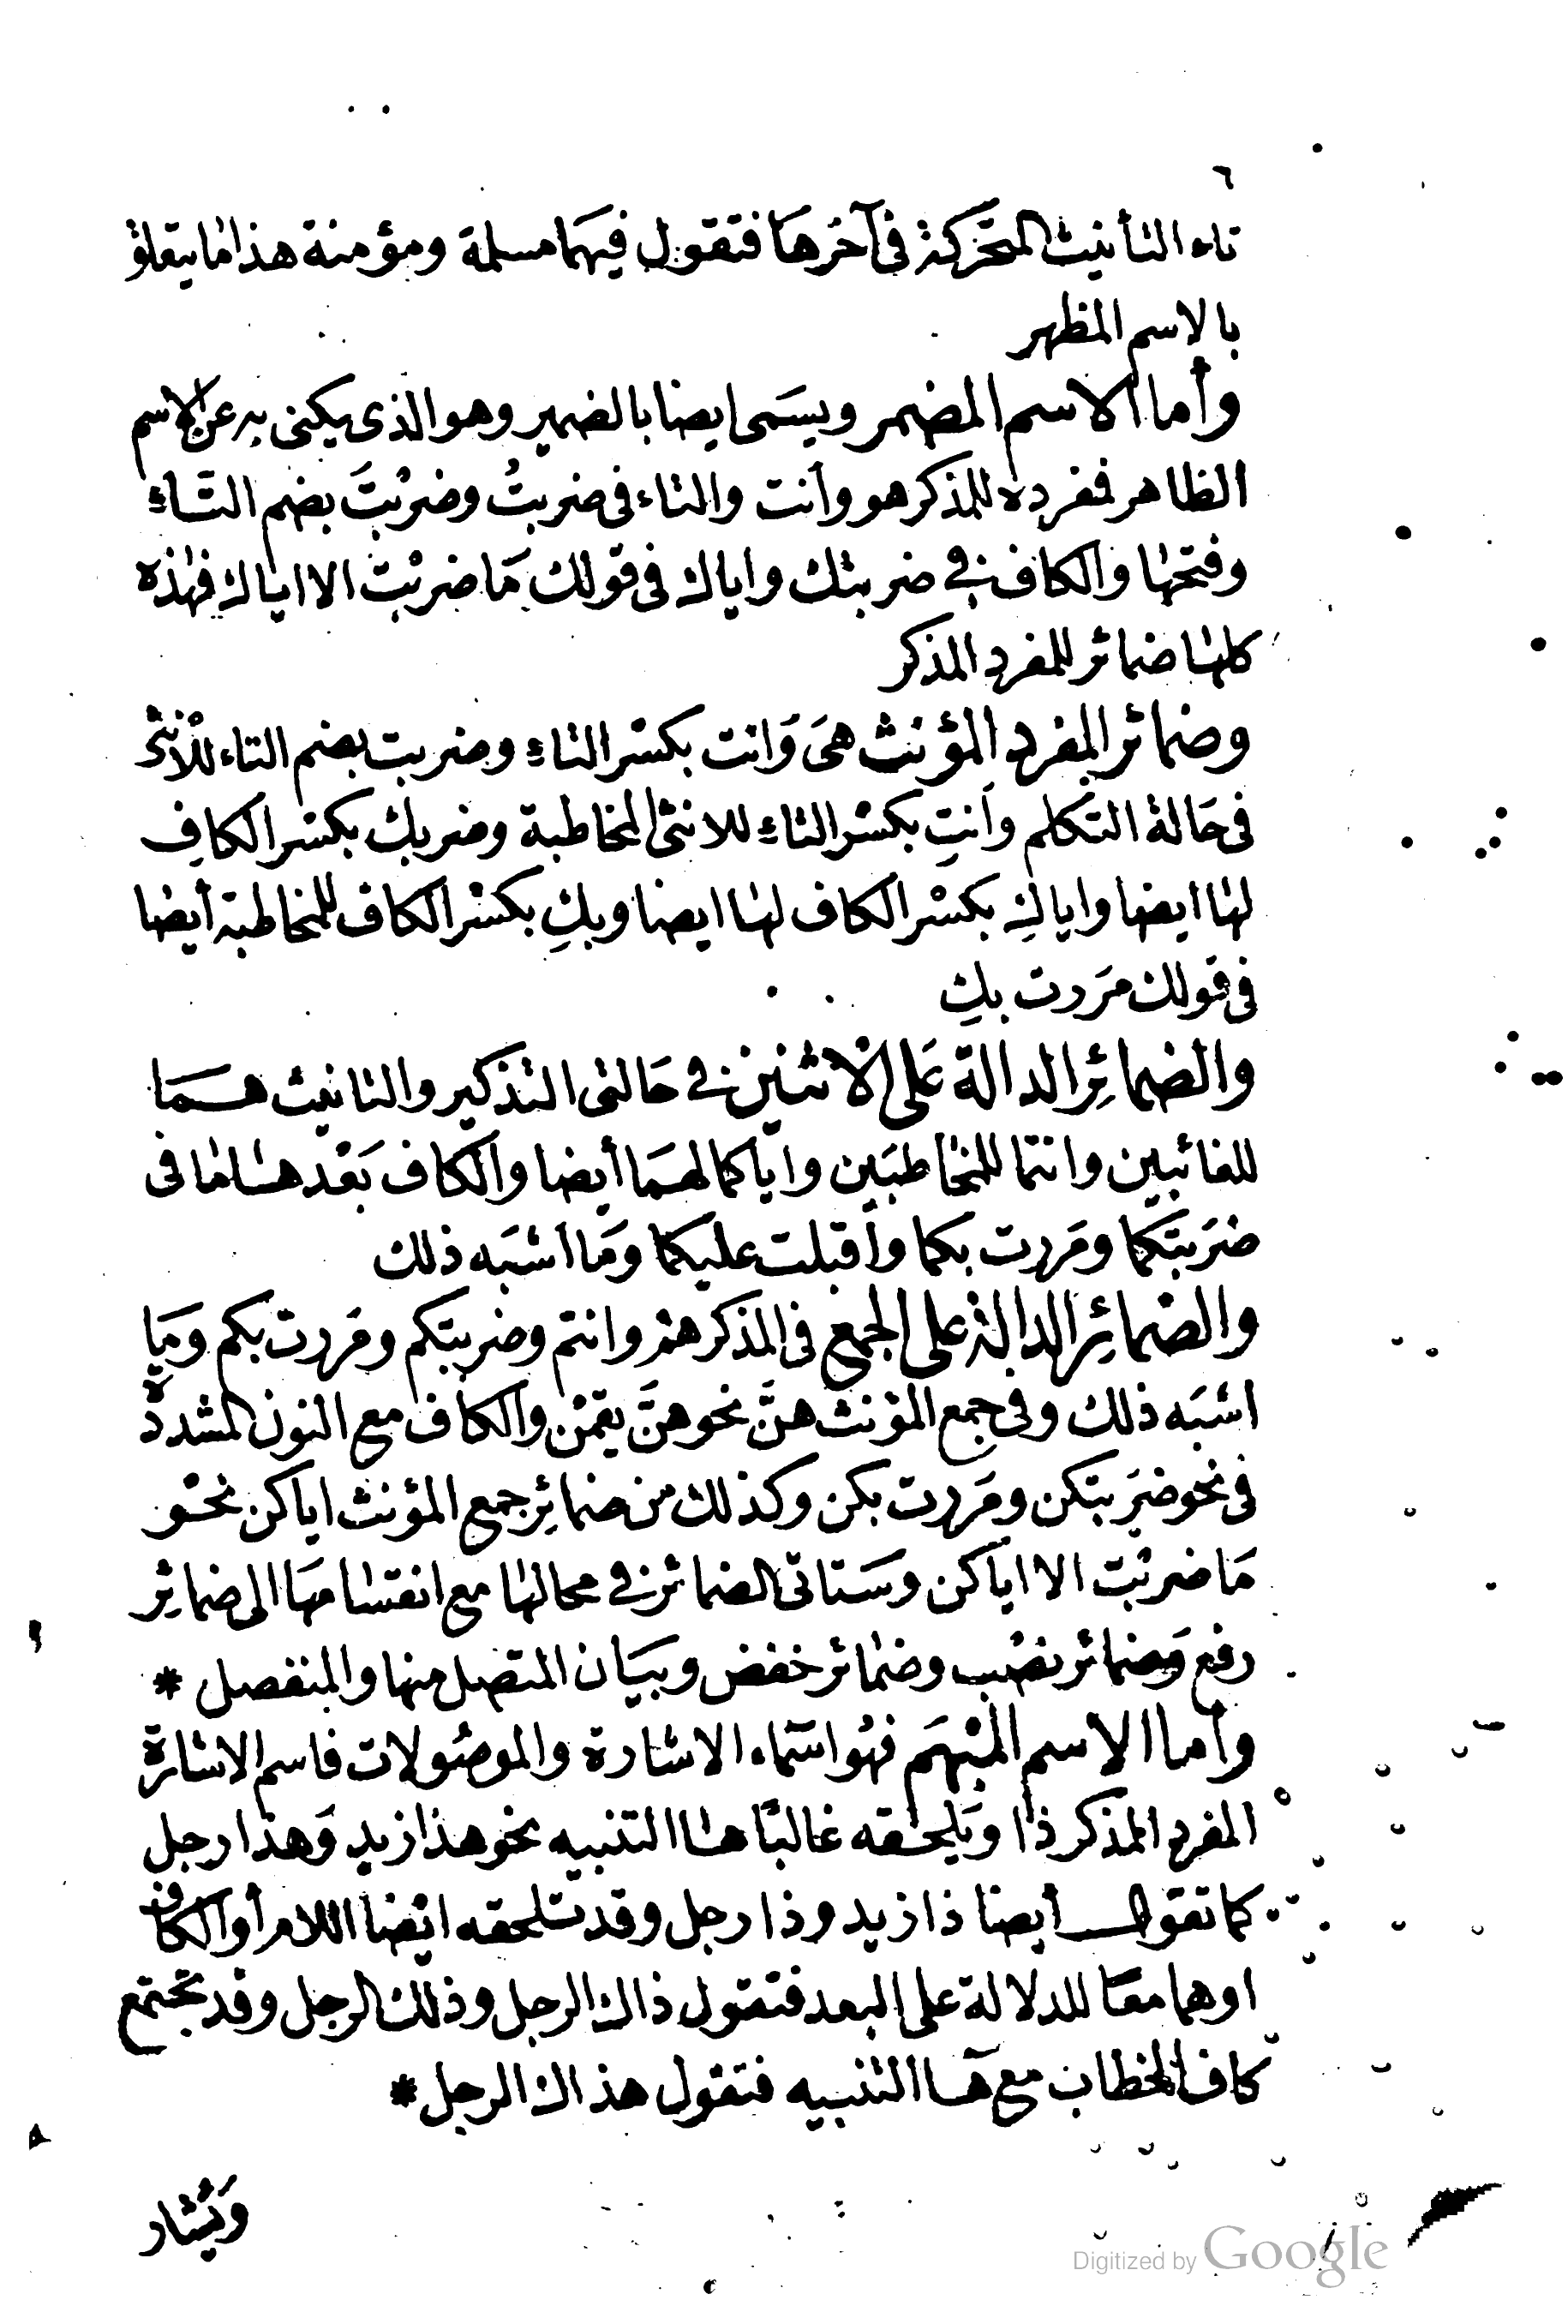 ٦
تاء التأنيث المتحركة فى آخرها فتقول فيهما مسلمة ومؤمنة هذا ما يتعلق
بالاسم المظهر
وأما الاسم المضمر ويسمى ايضا بالضمير وهو الذى يكنى به عن الاسم
الظاهر فمفرده للمذكر هو وأنت والتاء فى ضربتُ وضربْتَ بضم التَّاءِ
وفتحها والكاف فى ضربتك واياك فى قولك مَا ضربْتُ الا اياك فهذه
كلها ضمائر للمفرد المذكر
وضمائر المفرد المؤنث هىَ وَانت بكسْر التاءِ وضربت بضم التاء للأنثى
فى حَالة التكلم وأنتِ بكسْر التاءِ للانثى المخاطبة وضربك بكسْر الكافِ
لها ايضا واياكِ بكسْر الكاف لها ايضا وبكِ بكسْر الكاف للمخاطبة أيضا
فى قولك مَررت بكِ
والضمائِر الدالة عَلى الاثنين فى حَالتى التذكير والتانيث همَا
للغائبين وانتما للمخاطبَين واياكما لهمَا أيضا والكاف بَعْدها ما فى
ضرَبتكما ومَررت بكما وأقبلت عليكما وَما اشبَه ذلك
والضمائِر الدالة على الجمع فى المذكر همْ وانتم وضربتكم ومَررت بكم ومَا
اشبَه ذلك وفى جمع المؤنث هنَّ نحو هنَّ يقمْن والكاف مع النون المشددة
فى نحو ضرَبتكن ومَررت بكن وكذلك من ضمائِر جمع المؤنث اياكن نحو
مَا ضربْت الا اياكن وسَتاتى الضمائر فى محالها مع انقسامهَا الى ضمائِر
رفع وَضمائر نصْب وضمائر خفض وبيَان المتصل منها والمنفصل *
وأما الاسم المبْهَم فهُو اسَماء الاشارة والموصُولات فاسم الاشارة
المفرد المذكر ذا وَيلحقه غالبًا ها التنبيه نحو هذا زيد وَهذا رجل
كما تقول أيضا ذا زيد وذا رجل وقد تلحقه ايْضا اللام أو الكاف
او هما معًا للدلالة على البعد فتقول ذاك الرجل وذلك الرجل وقد تجتمع
كاف الخطاب مع هَا التنبيه فتقول هذاك الرجل *
وَيُشار
Digitized by Google